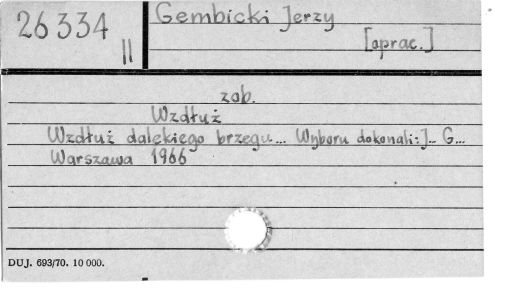 26334
II
Gembicki Jerzy
[oprac.]
zob.
Wzdłuż
Wzdłuż dalekiego brzegu... Wyboru dokonali: J... G...
Warszawa 1966
DUJ. 693/70. 10 000.